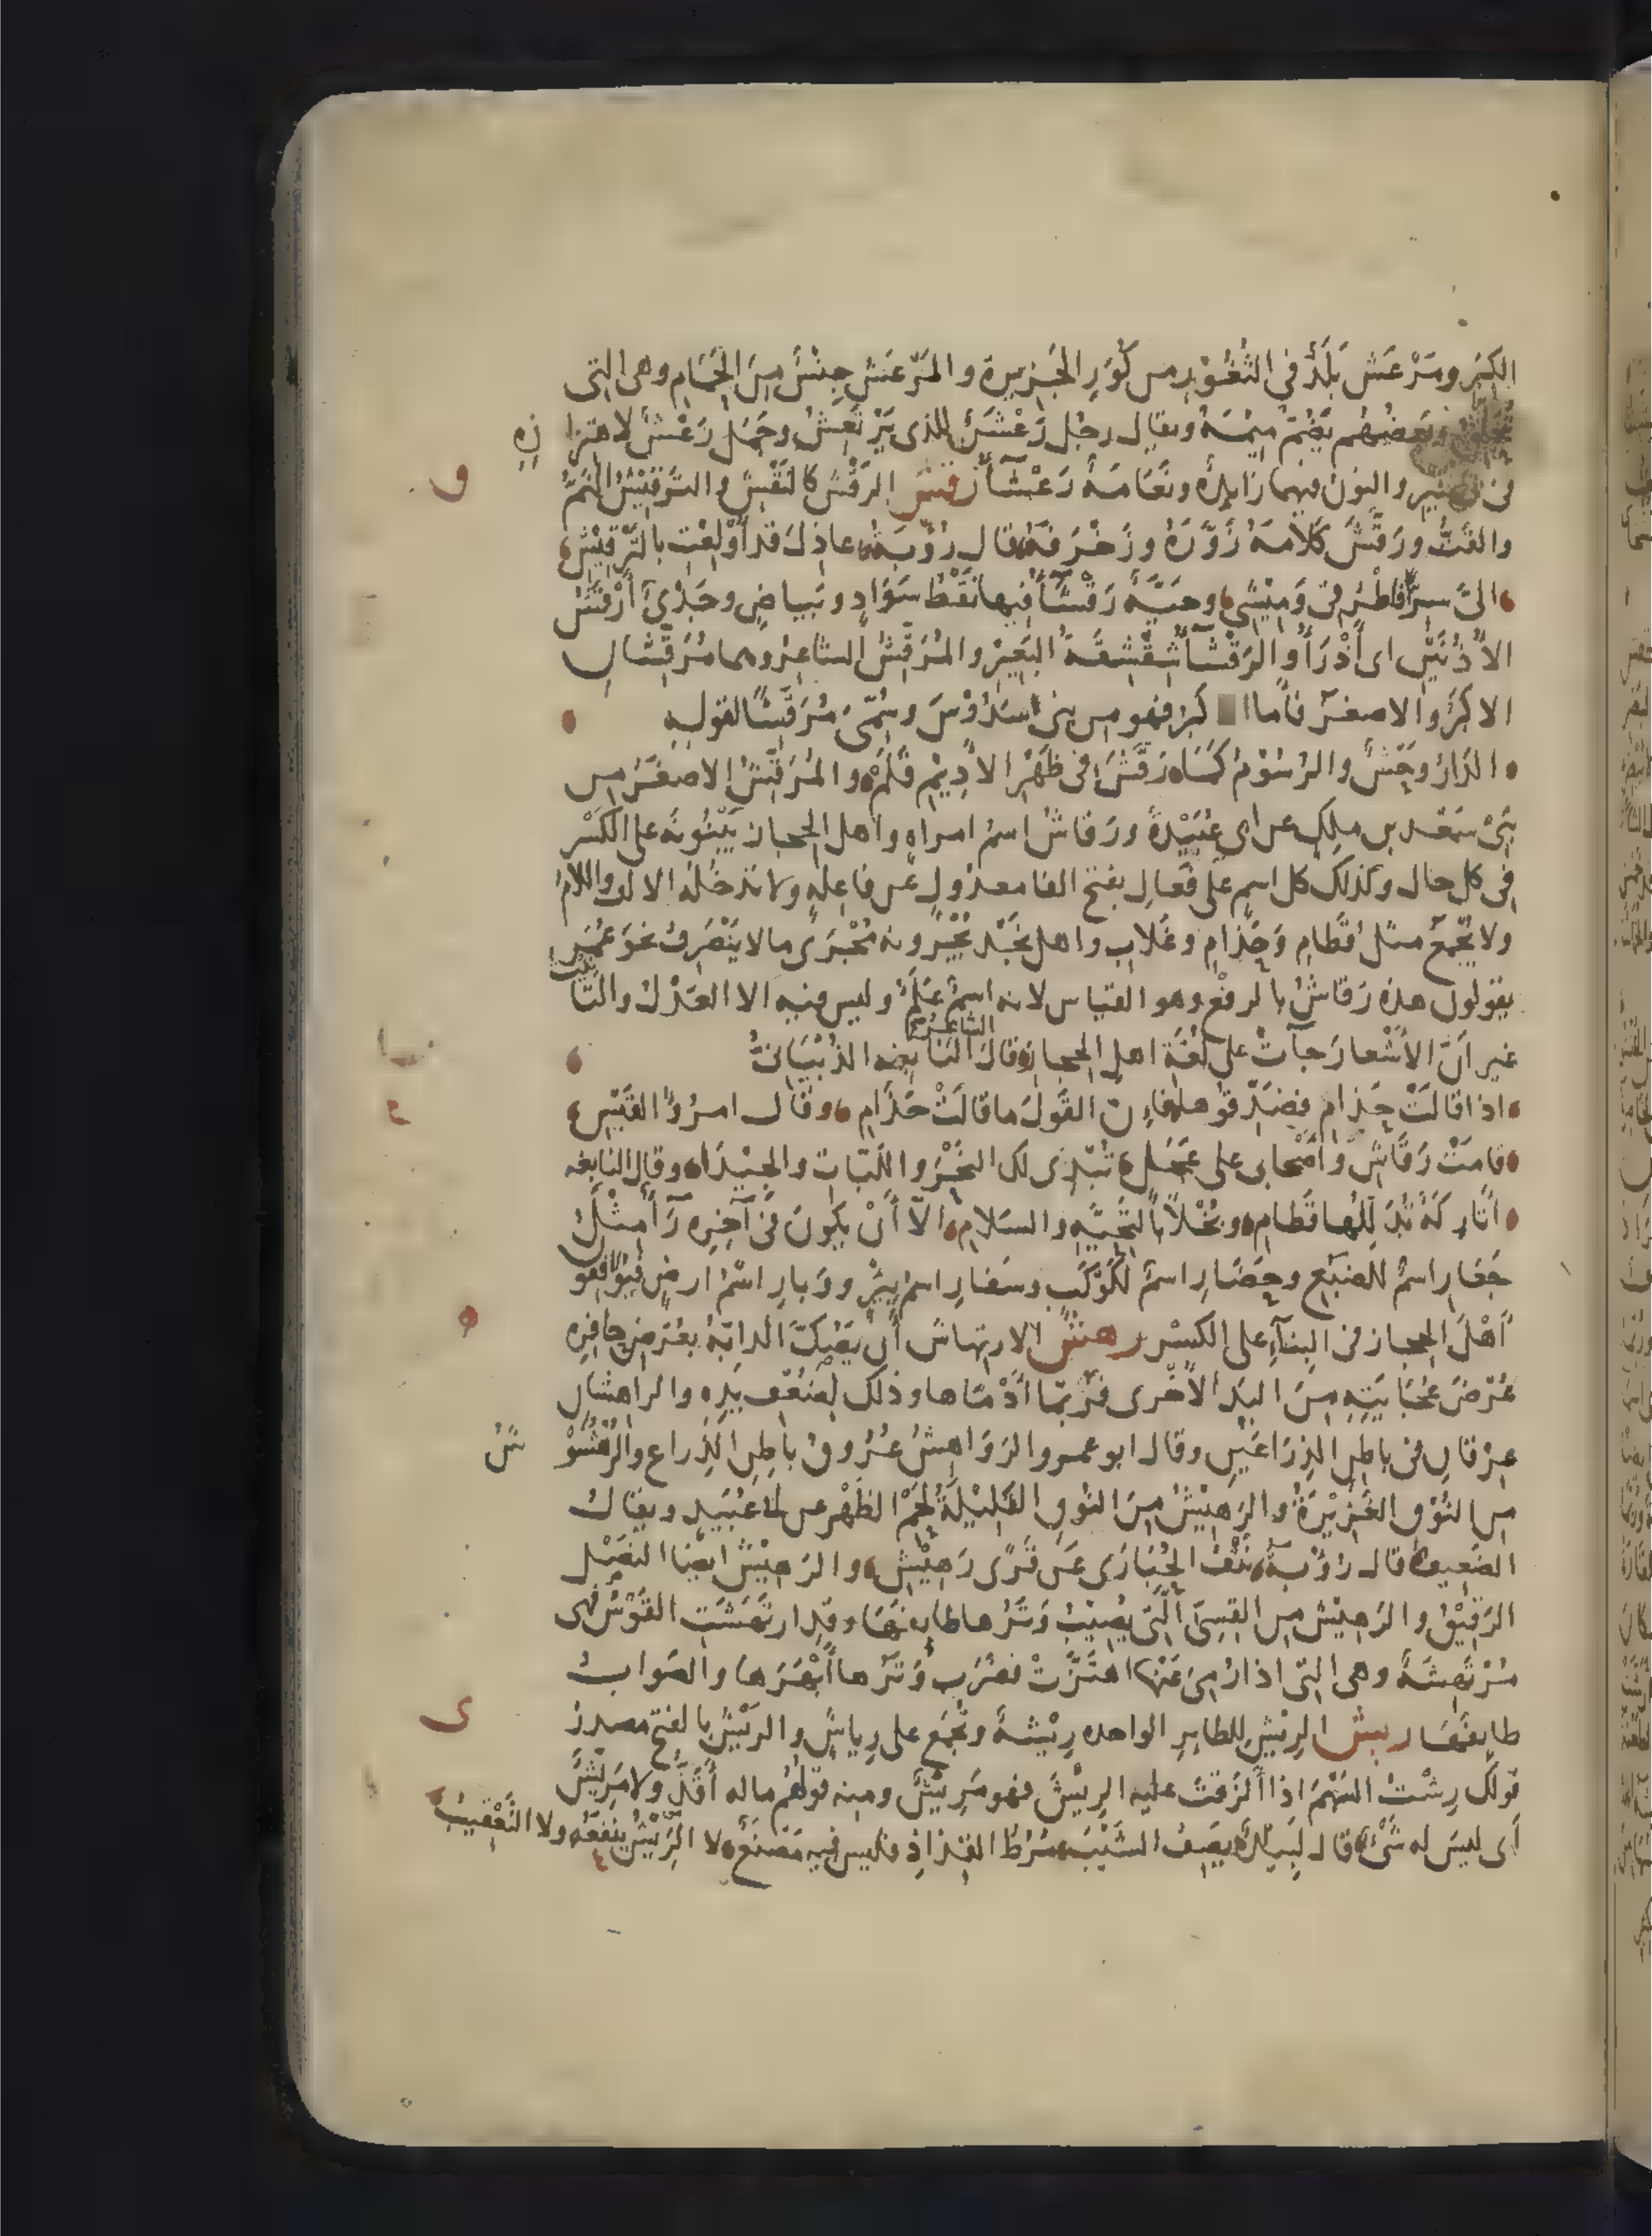 الكِبَرِ ومَرْعَش بَلَدٌ في الثُّغُوْرِ من كُوَرِ الجَزِيرة والمَرْعَشُ جِنْسٌ مِنَ الحَمَام وهى التى
تُحَلِّقُ وبَعضُهُم يَضُمّ مِيْمَهُ ويقال رجُل رَعْشَنٌ للذى يَرْتَعِشُ وجَمَل رَعْشَنٌ لاهتزا زه
فى السير والنون فيهما زايدة ونَعَامَةٌ رَعْشَآءُ رقش الرَقْش كالنَقْش والتَرقِيْشُ النَمُّ
والقَتُّ ورَقَّشَ كَلَامَهُ زَوَّرَهُ وزَخْرَفَهُ قال رُؤْبَةُ عاذِلَ قد أُوْلِعْتِ بالتَرْقِيْش
الىَّ سِرًّا فاطْرُقى وَمِيْشِى وحَيَّةٌ رَقْشَآءُ فيها نُقَط سَوَادٍ وبَيَاضٍ وجَدْىٌ أَرْقَشُ
الأُذُنَيْن اى أَذْرَأُ والرَقْشَآءُ شِقْشِقَةُ البَعِيْر والمُرَقِّشُ الشاعِرُ وهما مُرَقِّشَان
الاكبَرُ والاصغَرُ فأما الا كبرُ فهو من بنى سَدُوْسَ وسُمِّىَ مُرَقِّشًا لقوله
الدَارُ وَحْشٌ والرُسُوْمُ كَمَا رَقَّشَ فى ظَهْرِ الأَدِيْمِ قَلَمْ والمُرَقِّشُ الاصغَرُ من
بَنِىْ سَعْد بن ملِك عن ابى عُبَيْدةَ ورَقَاشُ اسمُ امراه واهل الحجاز يَبْنُونَهُ على الكَسْرِ
فى كل حال وكذلك كل اسم على فَعَالِ بفتح الفا معدُول عن فاعِلَهٍ ولا تدخُلُهُ الالف واللامُ
ولا يُجْمَعُ مثل قَطَامِ وَحَذَامِ وغَلَابِ واهل نَجْد يُجْرُونه مُجْرَى ما لا يَنْصَرِفُ نحوَ عُمَرَ
يقولون هذه رَقَاشُ بالرفع وهو القياس لانه اسمٌ عَلَمٌ وليس فيه الا العَدْلُ والتَّأنيث
غير أنَّ الأَشْعارَ جآتْ على لُغَةِ اهلِ الحجاز قال الشاعر النابغه الذُبْيَانىُّ
اذا قالَتْ حَذامِ فصَدِّقُوها فإن القَولَ ما قالَتْ حَذَامِ وقال امرُؤُ القَيْسِ
قامَتْ رَقَاشِ وأَصْحابى على عَجَلٍ تُبْدِى لك النَحْرَ واللَبَّاتِ والجِيْدَا وقال النابغه
اتَارِكَةٌ تَدَلُّلَها قَطَامِ وبُخْلًا بالتَّحِيَّةِ والسَلامِ الّا أَنْ يكونَ فى آخِرِه رَآءٌ مِثْلُ
جَعَارِ اسمٌ للضَبُعِ وحَضَارِ اسمٌ لكَوْكَبٍ وسَفَارِ اسمُ بِئْرٍ ووَبَارِ اسْمُ ارضٍ فيُوَافِقُو
أَهْلَ الحجاز فى البِنآءِ على الكسْر رهش الارتهاش أَنْ يَصُكَّ الدابّةُ بعُرْضِ حافِره
عُرْضَ عُجَايَتِهِ مِنَ اليَدِ الأُخْرى فرُبّما أَدْمَاها وذلك لِضُعْفِ يَدِه والراهِشَانِ
عِرْقان فى باطِنِ الذِرَاعَيْن وقال ابو عمرو الرَوَاهِشُ عُرُوقُ باطِنِ الذِراع والرُهْشُوْ شُ
من النُوْقِ الغَزِيْرَةُ والرَهِيْشُ مِنَ النُوْقِ القَلِيْلَةُ لَحْمِ الظَهْرِ عن ابى عُبَيد ويقالُ
الضَعِيفُ قال رُؤْبَةُ نَتْفَ الحُبَارَى عَن قَرًى رَهِيْشِ والرَهِيْشُ ايضًا النَصْلُ
الرَقِيْقُ والرَهِيْشُ من القِسِىّ الَّتى يُصِيْبُ وَتَرُها طايفَهَا وقد ارتَهَشَتِ القَوْسُ فهى
مُرْتَهِشَةٌ وهى التى اذا رُمِىَ عَنْها اهتَزَّتْ فضَرَبَ وَتَرُها أَبْهَرَها والصَوابُ
طايفَهَا ريش الرِيْش للطايرِ الواحده رِيْشَةٌ وتُجْمَع على رِياش والرَيْشُ بالفتح مصدرُ
قولك رِشْتُ السَهْمَ اذا ألزَقْتَ عليه الرِيْشَ فهو مَرِيْشٌ ومنه قولُهُم ماله أَقَذُّ ولا مَرِيْشٌ
أى ليسَ له شَىْءٌ قال لَبِيدٌ يَصِف الشَيْبَ مُرُطُ القِذَاذِ فليس فيه مَصْنَعٌ لا الرِيْشُ يَنفَعُه ولا التَعْقِيبُ